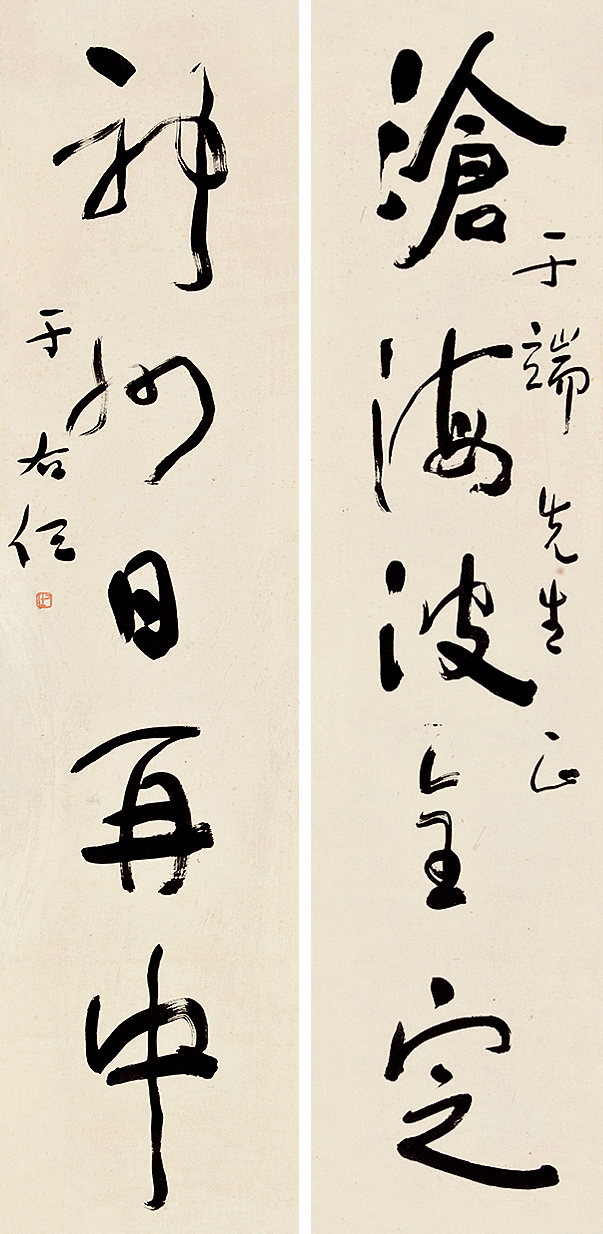 于端先生正
滄海波全定
神州日再中
于右任